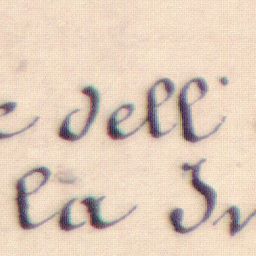 e dell'
la In